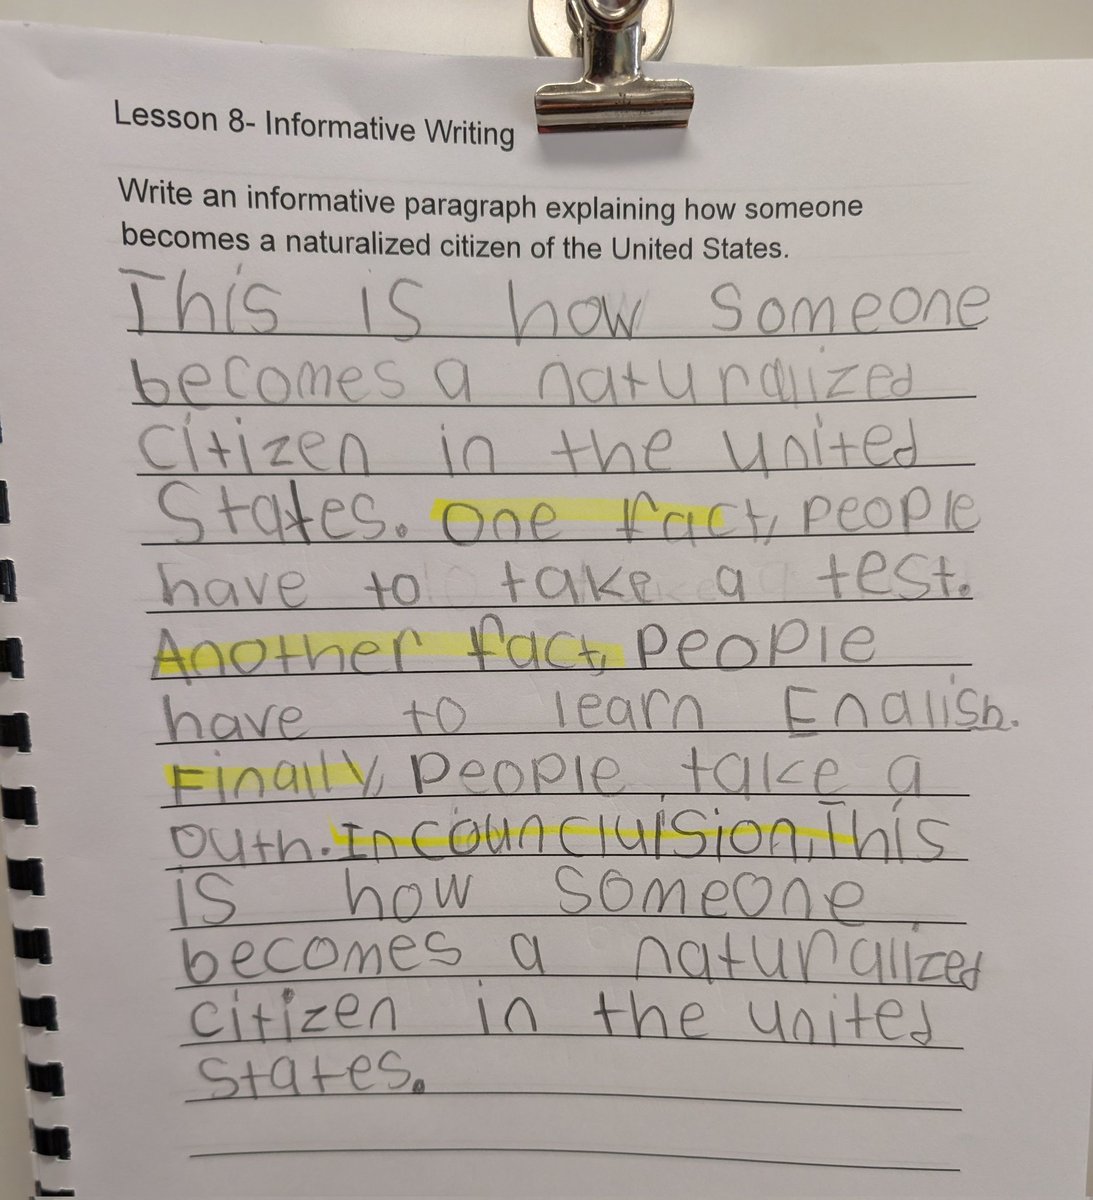 Lesson 8- Informative Writing
Write an informative paragraph explaining how someone
becomes a naturalized citizen of the United States.
This is how someone
becomes a naturalized
citizen in the united
States. One fact, people
have to take a test.
Another fact, people
have to learn English.
Finally, people take a
outh. In counclulsion, This
is how someone
becomes a naturalized
citizen in the united
states.